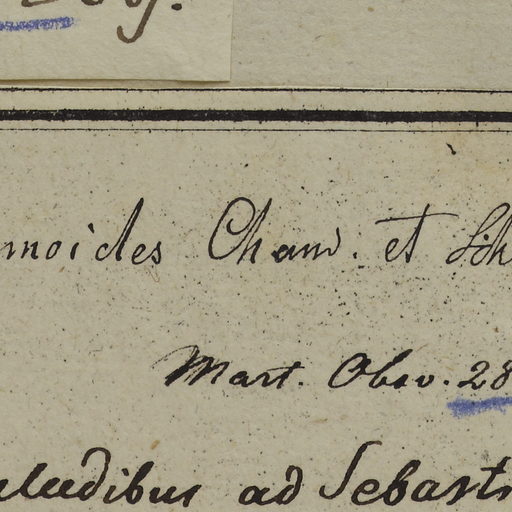 moides Cham. et Sch
Mart. Obsv. 28
aludibus ad Sebast